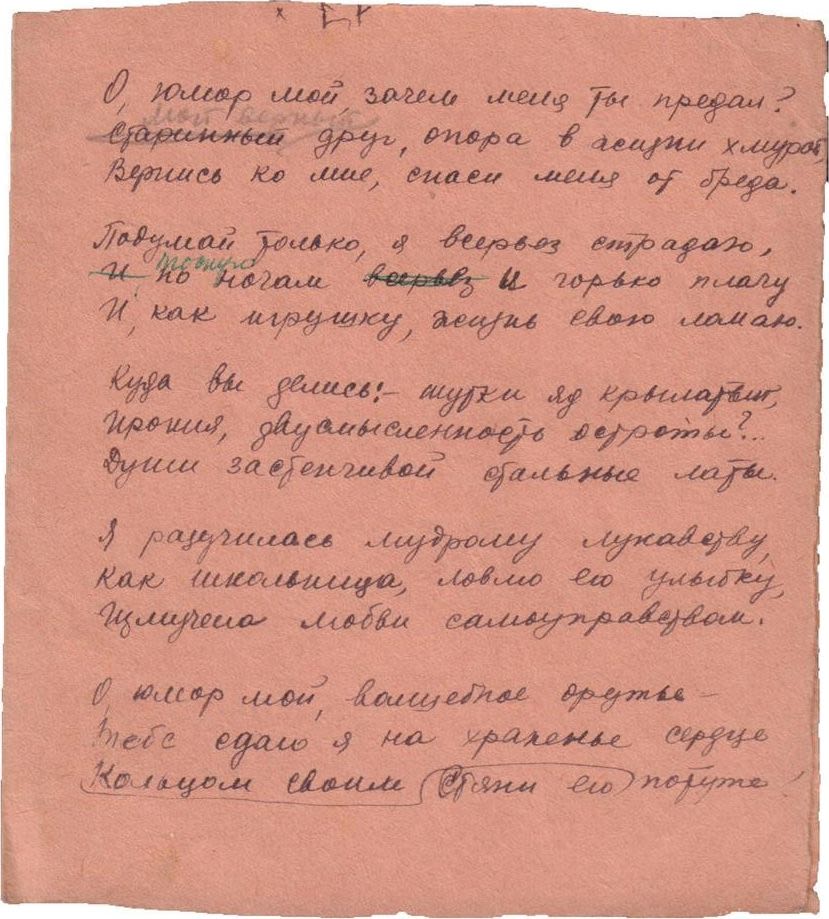 О, юмор мой, зачем меня ты предал?
мой верный
Старинный друг, опора в жизни хмурой,
Вернись ко мне, спаси меня от бреда.
Подумай только, я всерьез страдаю,
тоскую
И по ночам всерьёз и горько плачу
И, как игрушку, жизнь свою ломаю.
Куда вы делись: – шутки яд крылатый,
Ирония, двусмысленность остроты?..
Души застенчивой стальные латы.
Я разучилась мудрому лукавству,
Как школьница, ловлю его улыбку,
Измучена любви самоуправством.
О, юмор мой, волшебное оружье –
Тебе сдаю я на храненье сердце
Кольцом своим стяни его потуже!